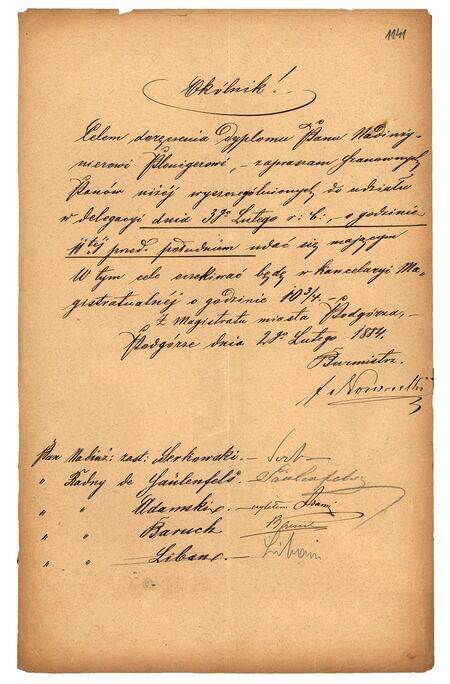 1141
Okólnik!
Celem doręczenia dyplomu Panu Nadinży-
nierowi Plenigerowi, - zapraszam Szanownych
Panów niżéj wyszczególnionych do udziału
w delegacyi dnia 3go Lutego r: b:, o godzinie
11téj przed południem udać się mającym
W tym celu oczekiwać będę w kancelaryi Ma-
gistratualnéj o godzinie 10 3/4. -
Z Magistratu miasta Podgórza, -
Podgórze dnia 2go Lutego 1884.
Burmistrz.
Pan Nadinż: zast: Serkowski. - Serk
" Radny de Gäulenfels. - Gäulenfels
" " Adamski. - czytałem Adam
" " Baruch - Baruch
" " Liban. - Liban